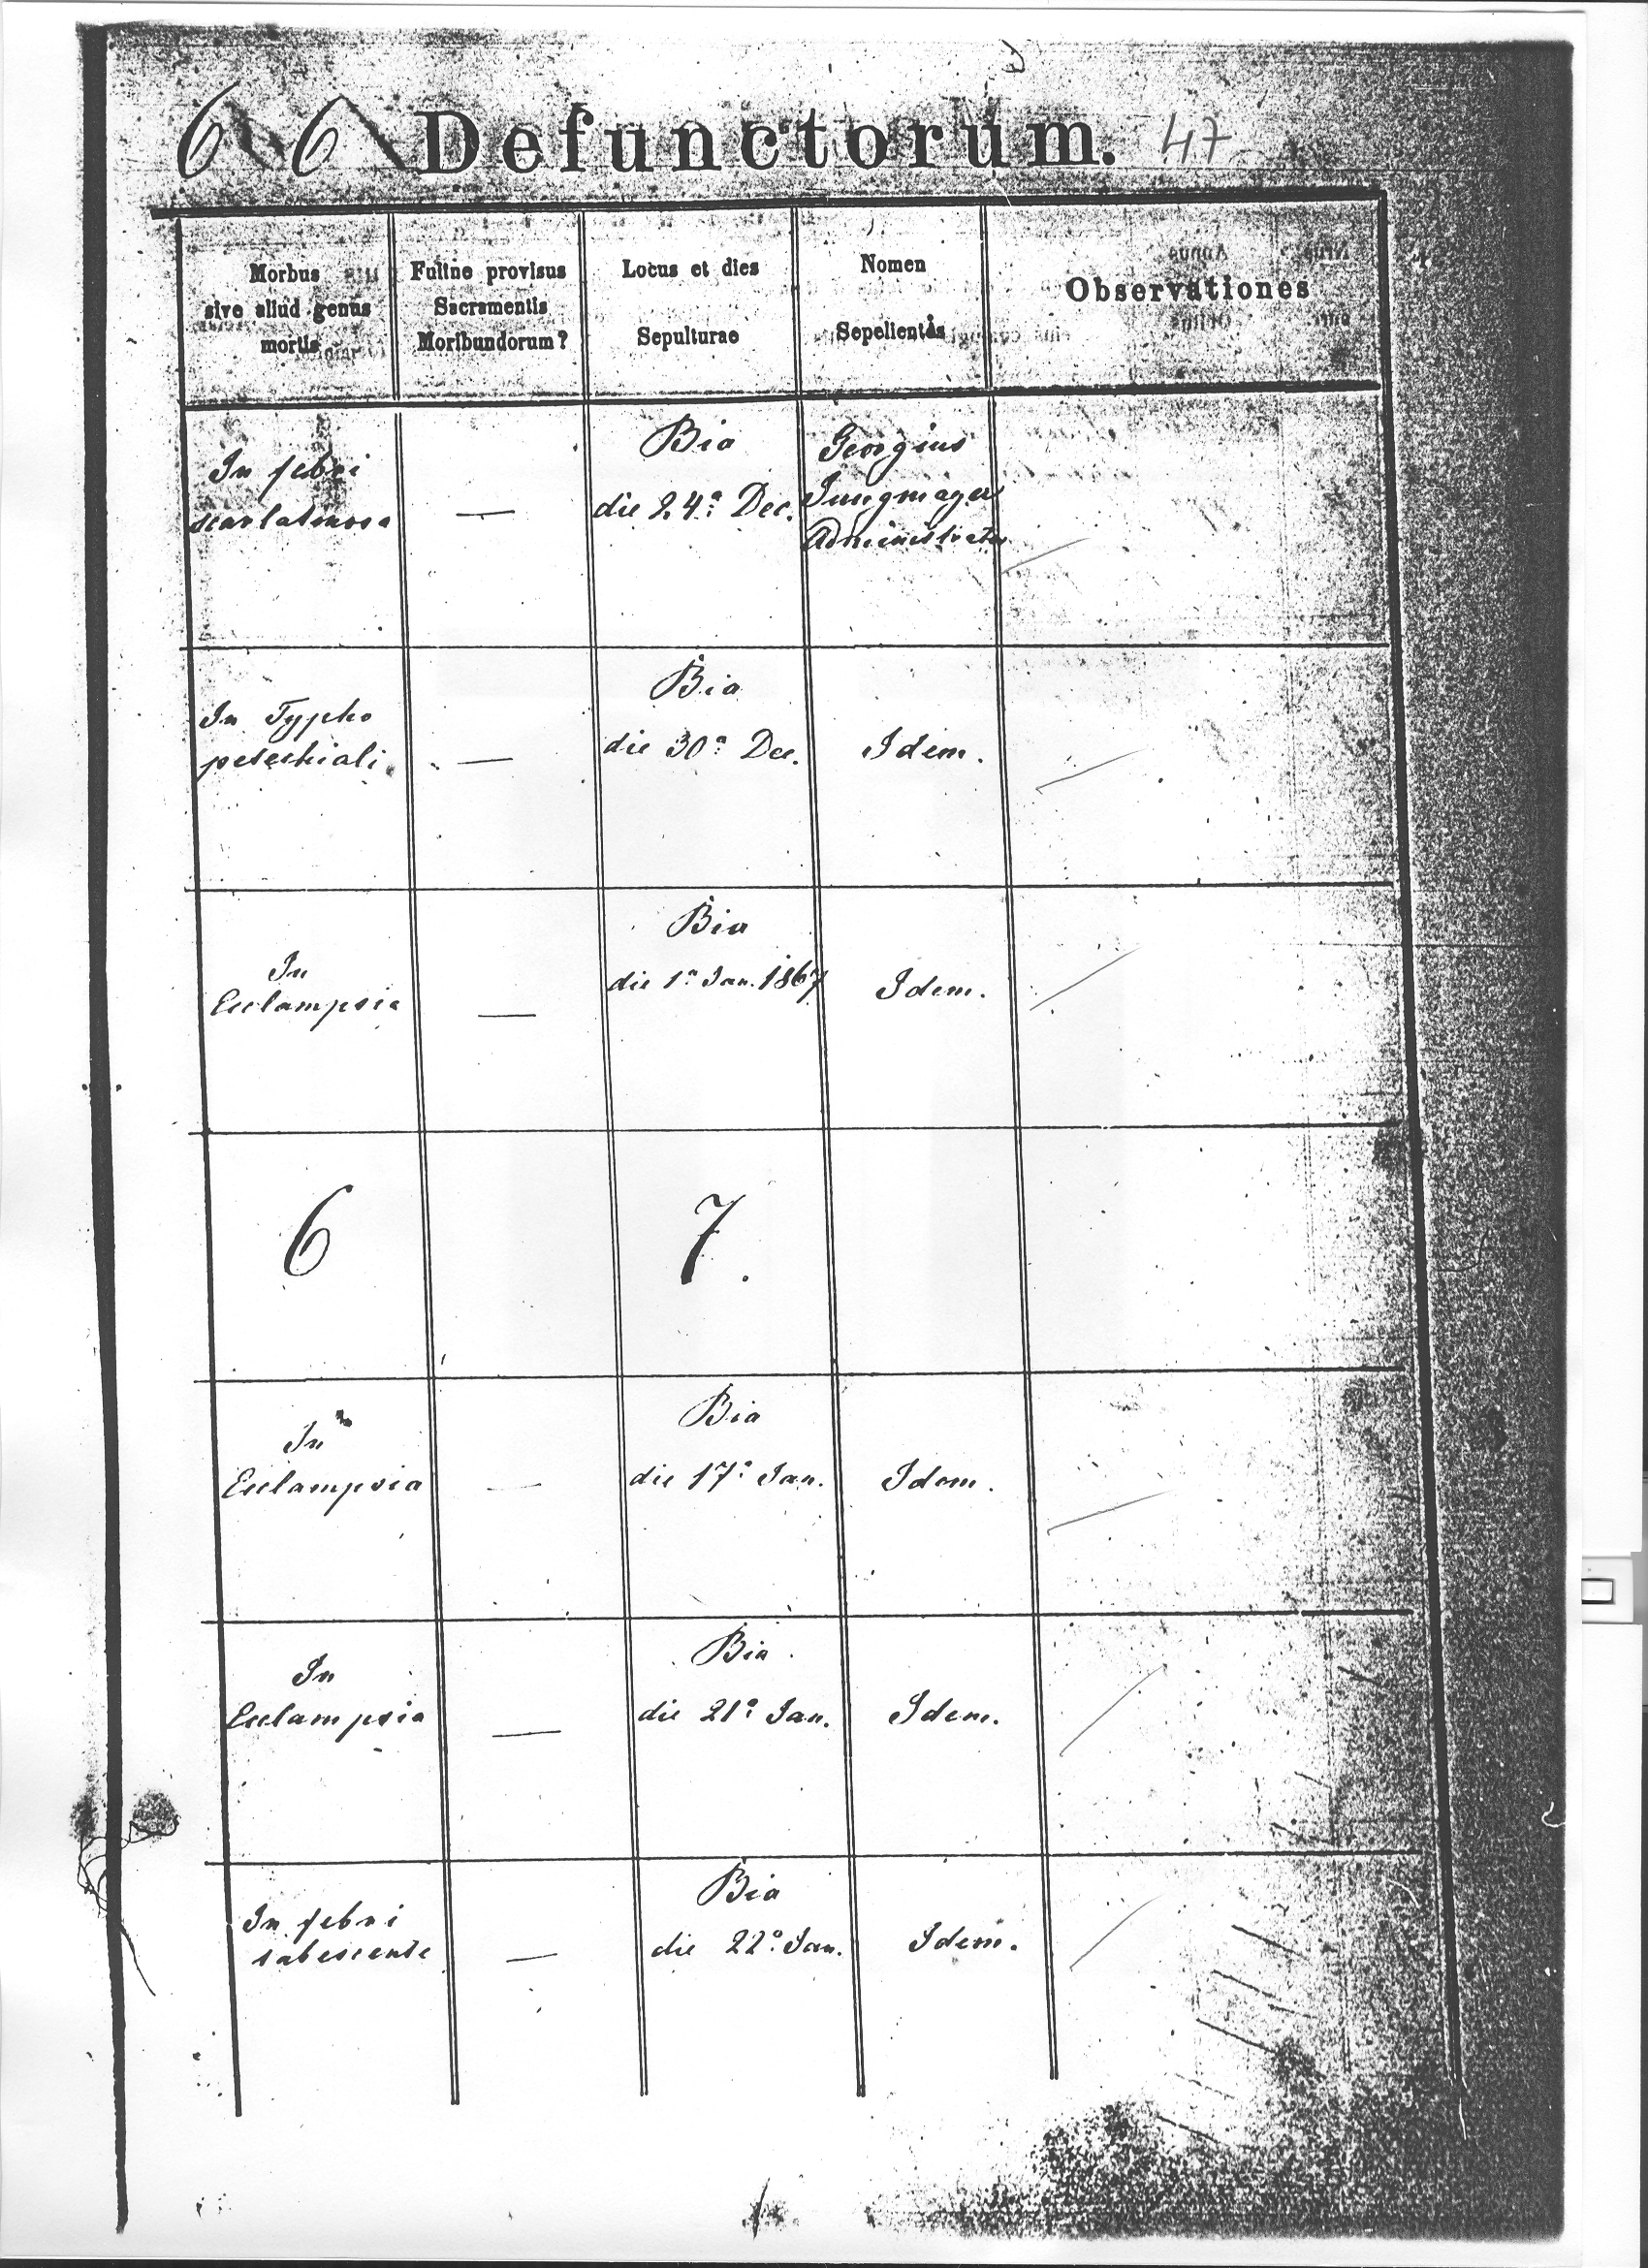 66 Defunctorum. 47
Morbus
sive aliud genus
mortis
Fuitne provisus
Sacramentis
Moribundorum?
Locus et dies
Sepulturae
Nomen
Sepelientis
Observationes
In febri
scarlatinosa
—
Bia
die 24ª Dec.
Georgius
Jungmayer
Administrator
In Typho
petechiali
—
Bia
die 30ª Dec.
Idem.
In
Eclampsia
—
Bia
die 1ª Jan. 1867
Idem.
6 7.
In
Eclampsia
—
Bia
die 17ª Jan.
Idem.
In
Eclampsia
—
Bia
die 21ª Jan.
Idem.
In febri
tabescente
—
Bia
die 22ª Jan.
Idem.